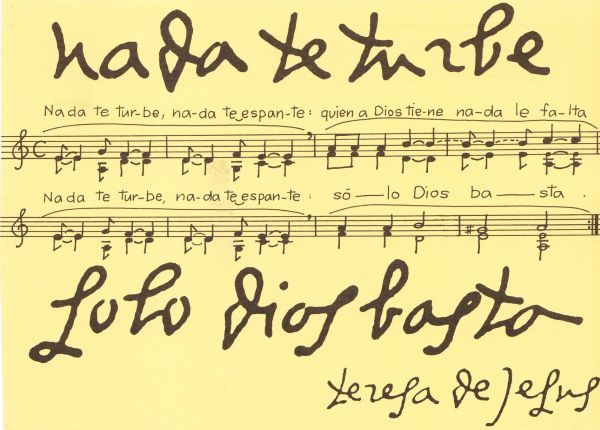 nada te turbe
Na da te tur-be, na-da te espan-te: quien a Dios tie-ne na-da le fa-lta
Na da te tur-be, na-da te espan-te: só—lo Dios ba—sta.
Solo dios basta
teresa de Jesus